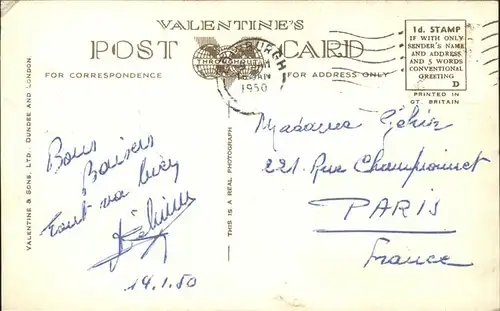 VALENTINE'S
POST CARD
THROUGHOUT
FOR CORRESPONDENCE
FOR ADDRESS ONLY
1d. STAMP
IF WITH ONLY
SENDER'S NAME
AND ADDRESS
AND 5 WORDS
CONVENTIONAL
GREETING
D
PRINTED IN
GT. BRITAIN
BURGH
JAN
1950
VALENTINE & SONS, LTD., DUNDEE AND LONDON.
THIS IS A REAL PHOTOGRAPH
Bons
Baisers
Tout va bien
14.1.50
Madame
221. Rue Championnet
PARIS
France